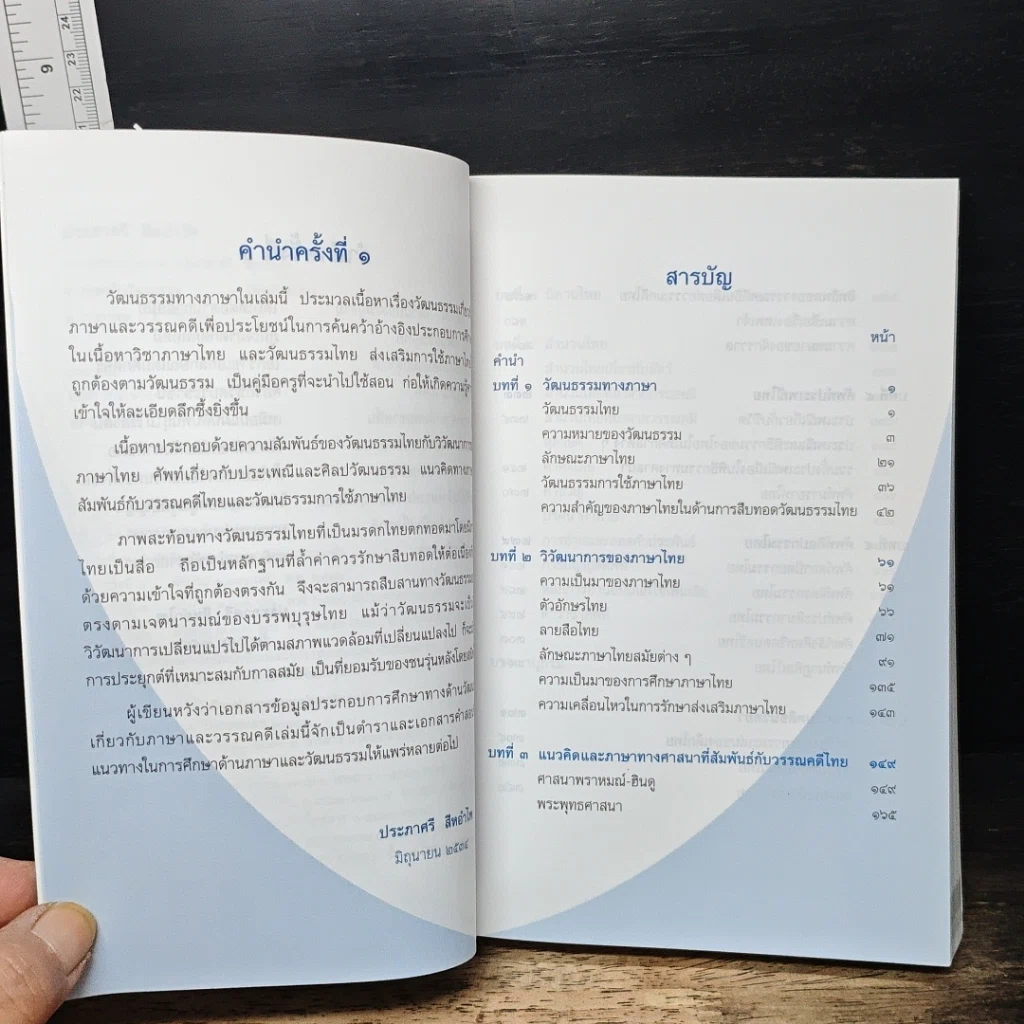 24
23
9
22
คำนำครั้งที่ ๑
วัฒนธรรมทางภาษาในเล่มนี้ ประมวลเนื้อหาเรื่องวัฒนธรรมเกี่ยว
ภาษาและวรรณคดีเพื่อประโยชน์ในการค้นคว้าอ้างอิงประกอบการ
ในเนื้อหาวิชาภาษาไทย และวัฒนธรรมไทย ส่งเสริมการใช้ภาษา
ถูกต้องตามวัฒนธรรม เป็นคู่มือครูที่จะนำไปใช้สอน ก่อให้เกิดความ
เข้าใจให้ละเอียดลึกซึ้งยิ่งขึ้น
เนื้อหาประกอบด้วยความสัมพันธ์ของวัฒนธรรมไทยกับวิวัฒนาการ
ภาษาไทย ศัพท์เกี่ยวกับประเพณีและศิลปวัฒนธรรม แนวคิดทาง
สัมพันธ์กับวรรณคดีไทยและวัฒนธรรมการใช้ภาษาไทย
ภาพสะท้อนทางวัฒนธรรมไทยที่เป็นมรดกไทยตกทอดมาโดย
ไทยเป็นสื่อ ถือเป็นหลักฐานที่ล้ำค่าควรรักษาสืบทอดให้ต่อเนื่อง
ด้วยความเข้าใจที่ถูกต้องตรงกัน จึงจะสามารถสืบสานทางวัฒนธรรม
ตรงตามเจตนารมณ์ของบรรพบุรุษไทย แม้ว่าวัฒนธรรมจะ
วิวัฒนาการเปลี่ยนแปรไปได้ตามสภาพแวดล้อมที่เปลี่ยนแปลงไป
การประยุกต์ที่เหมาะสมกับกาลสมัย เป็นที่ยอมรับของชนรุ่นหลังโดย
ผู้เขียนหวังว่าเอกสารข้อมูลประกอบการศึกษาทางด้าน
เกี่ยวกับภาษาและวรรณคดีเล่มนี้จักเป็นตำราและเอกสาร
แนวทางในการศึกษาด้านภาษาและวัฒนธรรมให้แพร่หลายต่อไป
ประภาศรี
มิถุนายน ๒๕๓๔
สารบัญ
หน้า
คำนำ
บทที่ ๑ วัฒนธรรมทางภาษา ๑
วัฒนธรรมไทย ๑
ความหมายของวัฒนธรรม ๓
ลักษณะภาษาไทย ๒๑
วัฒนธรรมการใช้ภาษาไทย ๓๖
ความสำคัญของภาษาไทยในด้านการสืบทอดวัฒนธรรมไทย ๔๒
บทที่ ๒ วิวัฒนาการของภาษาไทย ๖๑
ความเป็นมาของภาษาไทย ๖๑
ตัวอักษรไทย ๖๖
ลายสือไทย ๗๑
ลักษณะภาษาไทยสมัยต่าง ๆ ๙๑
ความเป็นมาของการศึกษาภาษาไทย ๑๓๕
ความเคลื่อนไหวในการรักษาส่งเสริมภาษาไทย ๑๔๓
บทที่ ๓ แนวคิดและภาษาทางศาสนาที่สัมพันธ์กับวรรณคดีไทย ๑๔๙
ศาสนาพราหมณ์-ฮินดู ๑๔๙
พระพุทธศาสนา ๑๖๕